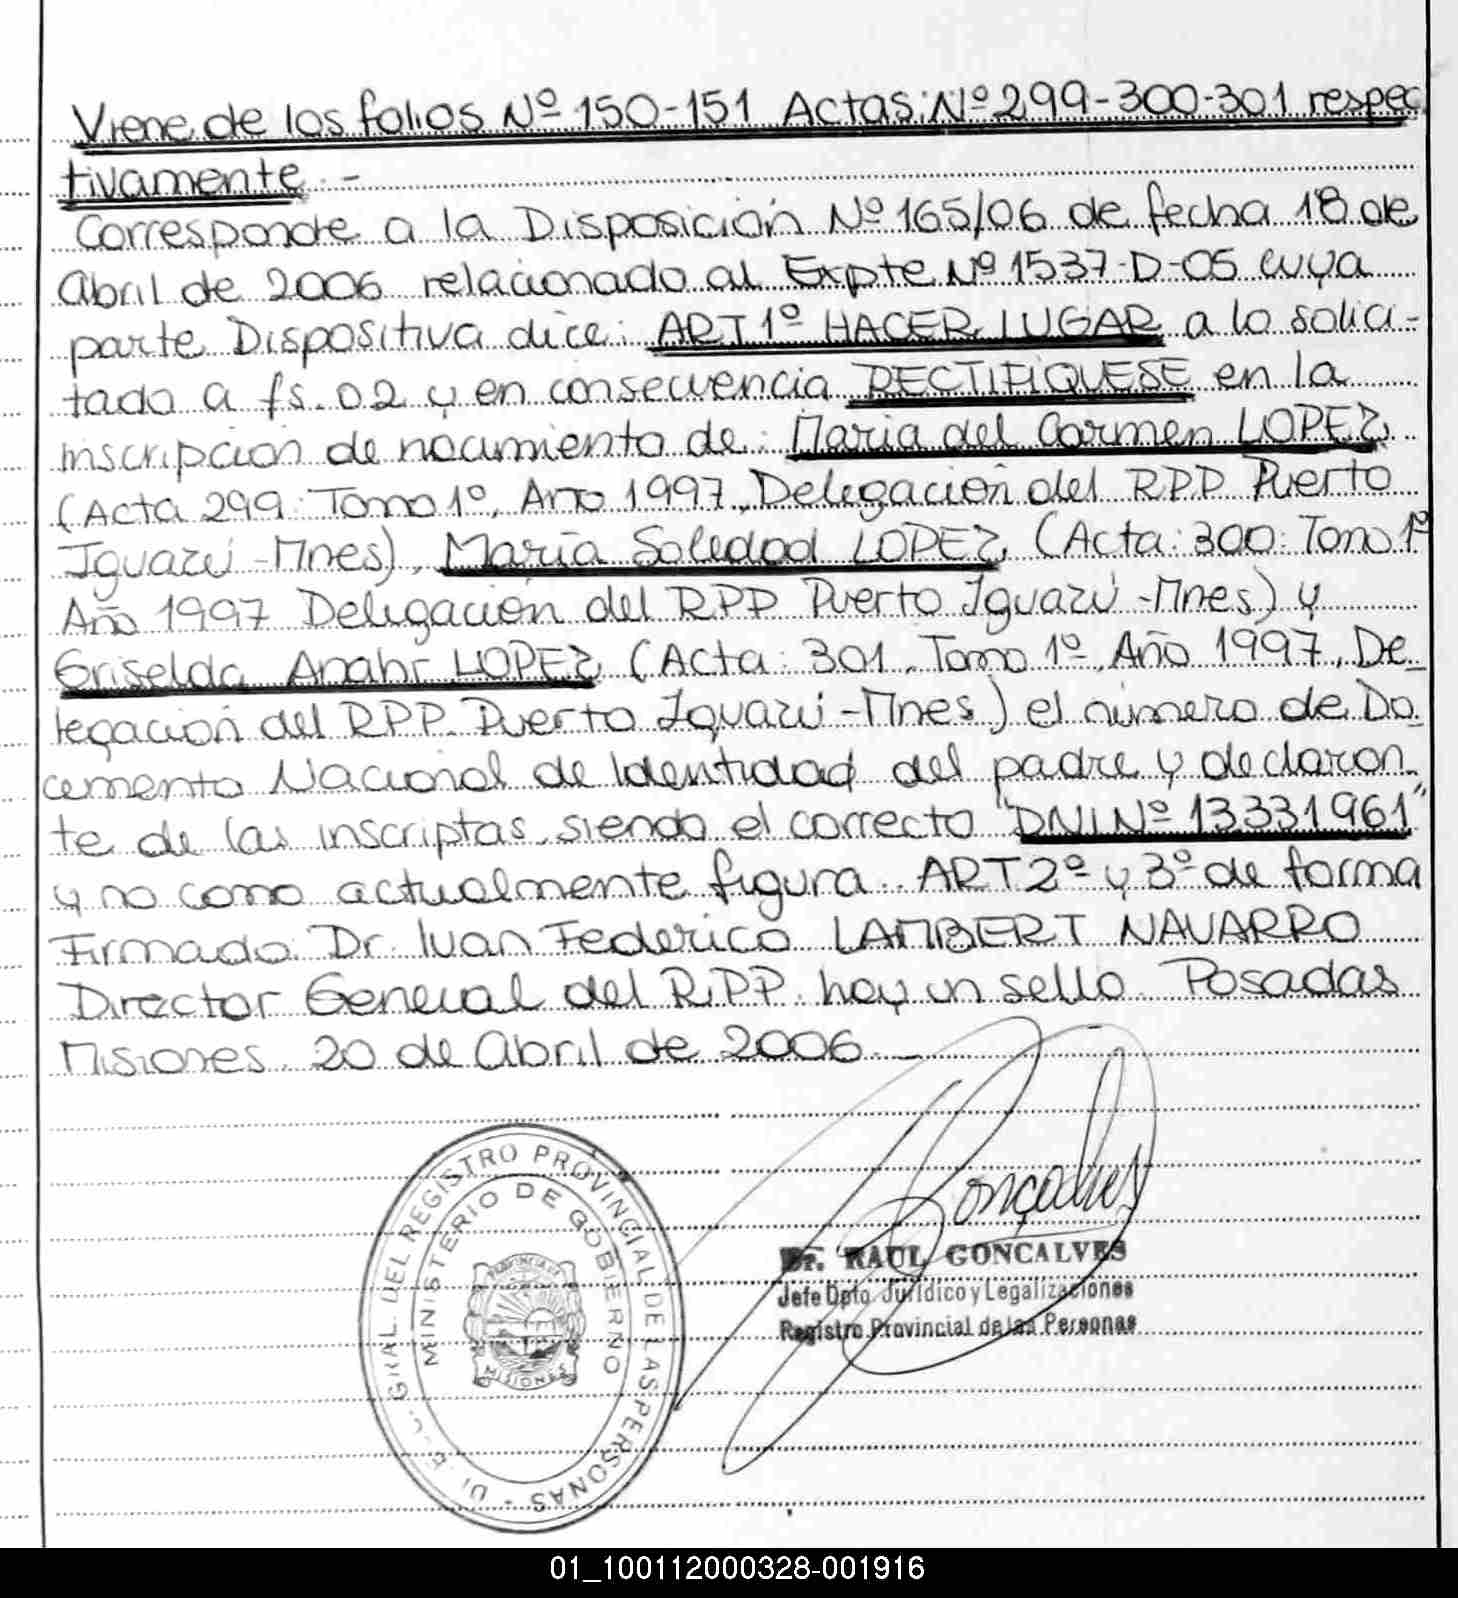 Viene de los folios Nº 150-151 Actas: Nº 299-300-301 respec
tivamente.-
Corresponde a la Disposición Nº 165/06 de fecha 18 de
Abril de 2006 relacionado al Expte Nº 1537-D-05 cuya
parte Dispositiva dice: ART 1º HACER LUGAR a lo solici-
tado a fs. 02 y en consecuencia RECTIFIQUESE en la
inscripción de nacimiento de: Maria del Carmen LOPEZ
(Acta 299: Tomo 1º, Año 1997, Delegación del RPP Puerto
Iguazú-Mnes), María Soledad LOPEZ, (Acta: 300: Tomo 1º
Año 1997 Delegación del RPP Puerto Iguazú-Mnes) y
Griselda Anahi LOPEZ (Acta: 301, Tomo 1º, Año 1997, De-
legación del RPP. Puerto Iguazú-Mnes) el número de Do
cemento Nacional de Identidad del padre y declaran-
te de las inscriptas, siendo el correcto "DNI Nº 13331961"
y no como actualmente figura. ART 2º y 3º de forma
Firmado: Dr. Ivan Federico LAMBERT NAVARRO
Director General del R.PP. hay un sello. Posadas
Misiones. 20 de Abril de 2006.-
GRAL. DEL REGISTRO PROVINCIAL DE LAS PERSONAS
MINISTERIO DE GOBIERNO
MISIONES
Gonçalves
Dr. RAUL GONCALVES
Jefe Dpto. Jurídico y Legalizaciones
Registro Provincial de las Personas
01_100112000328-001916